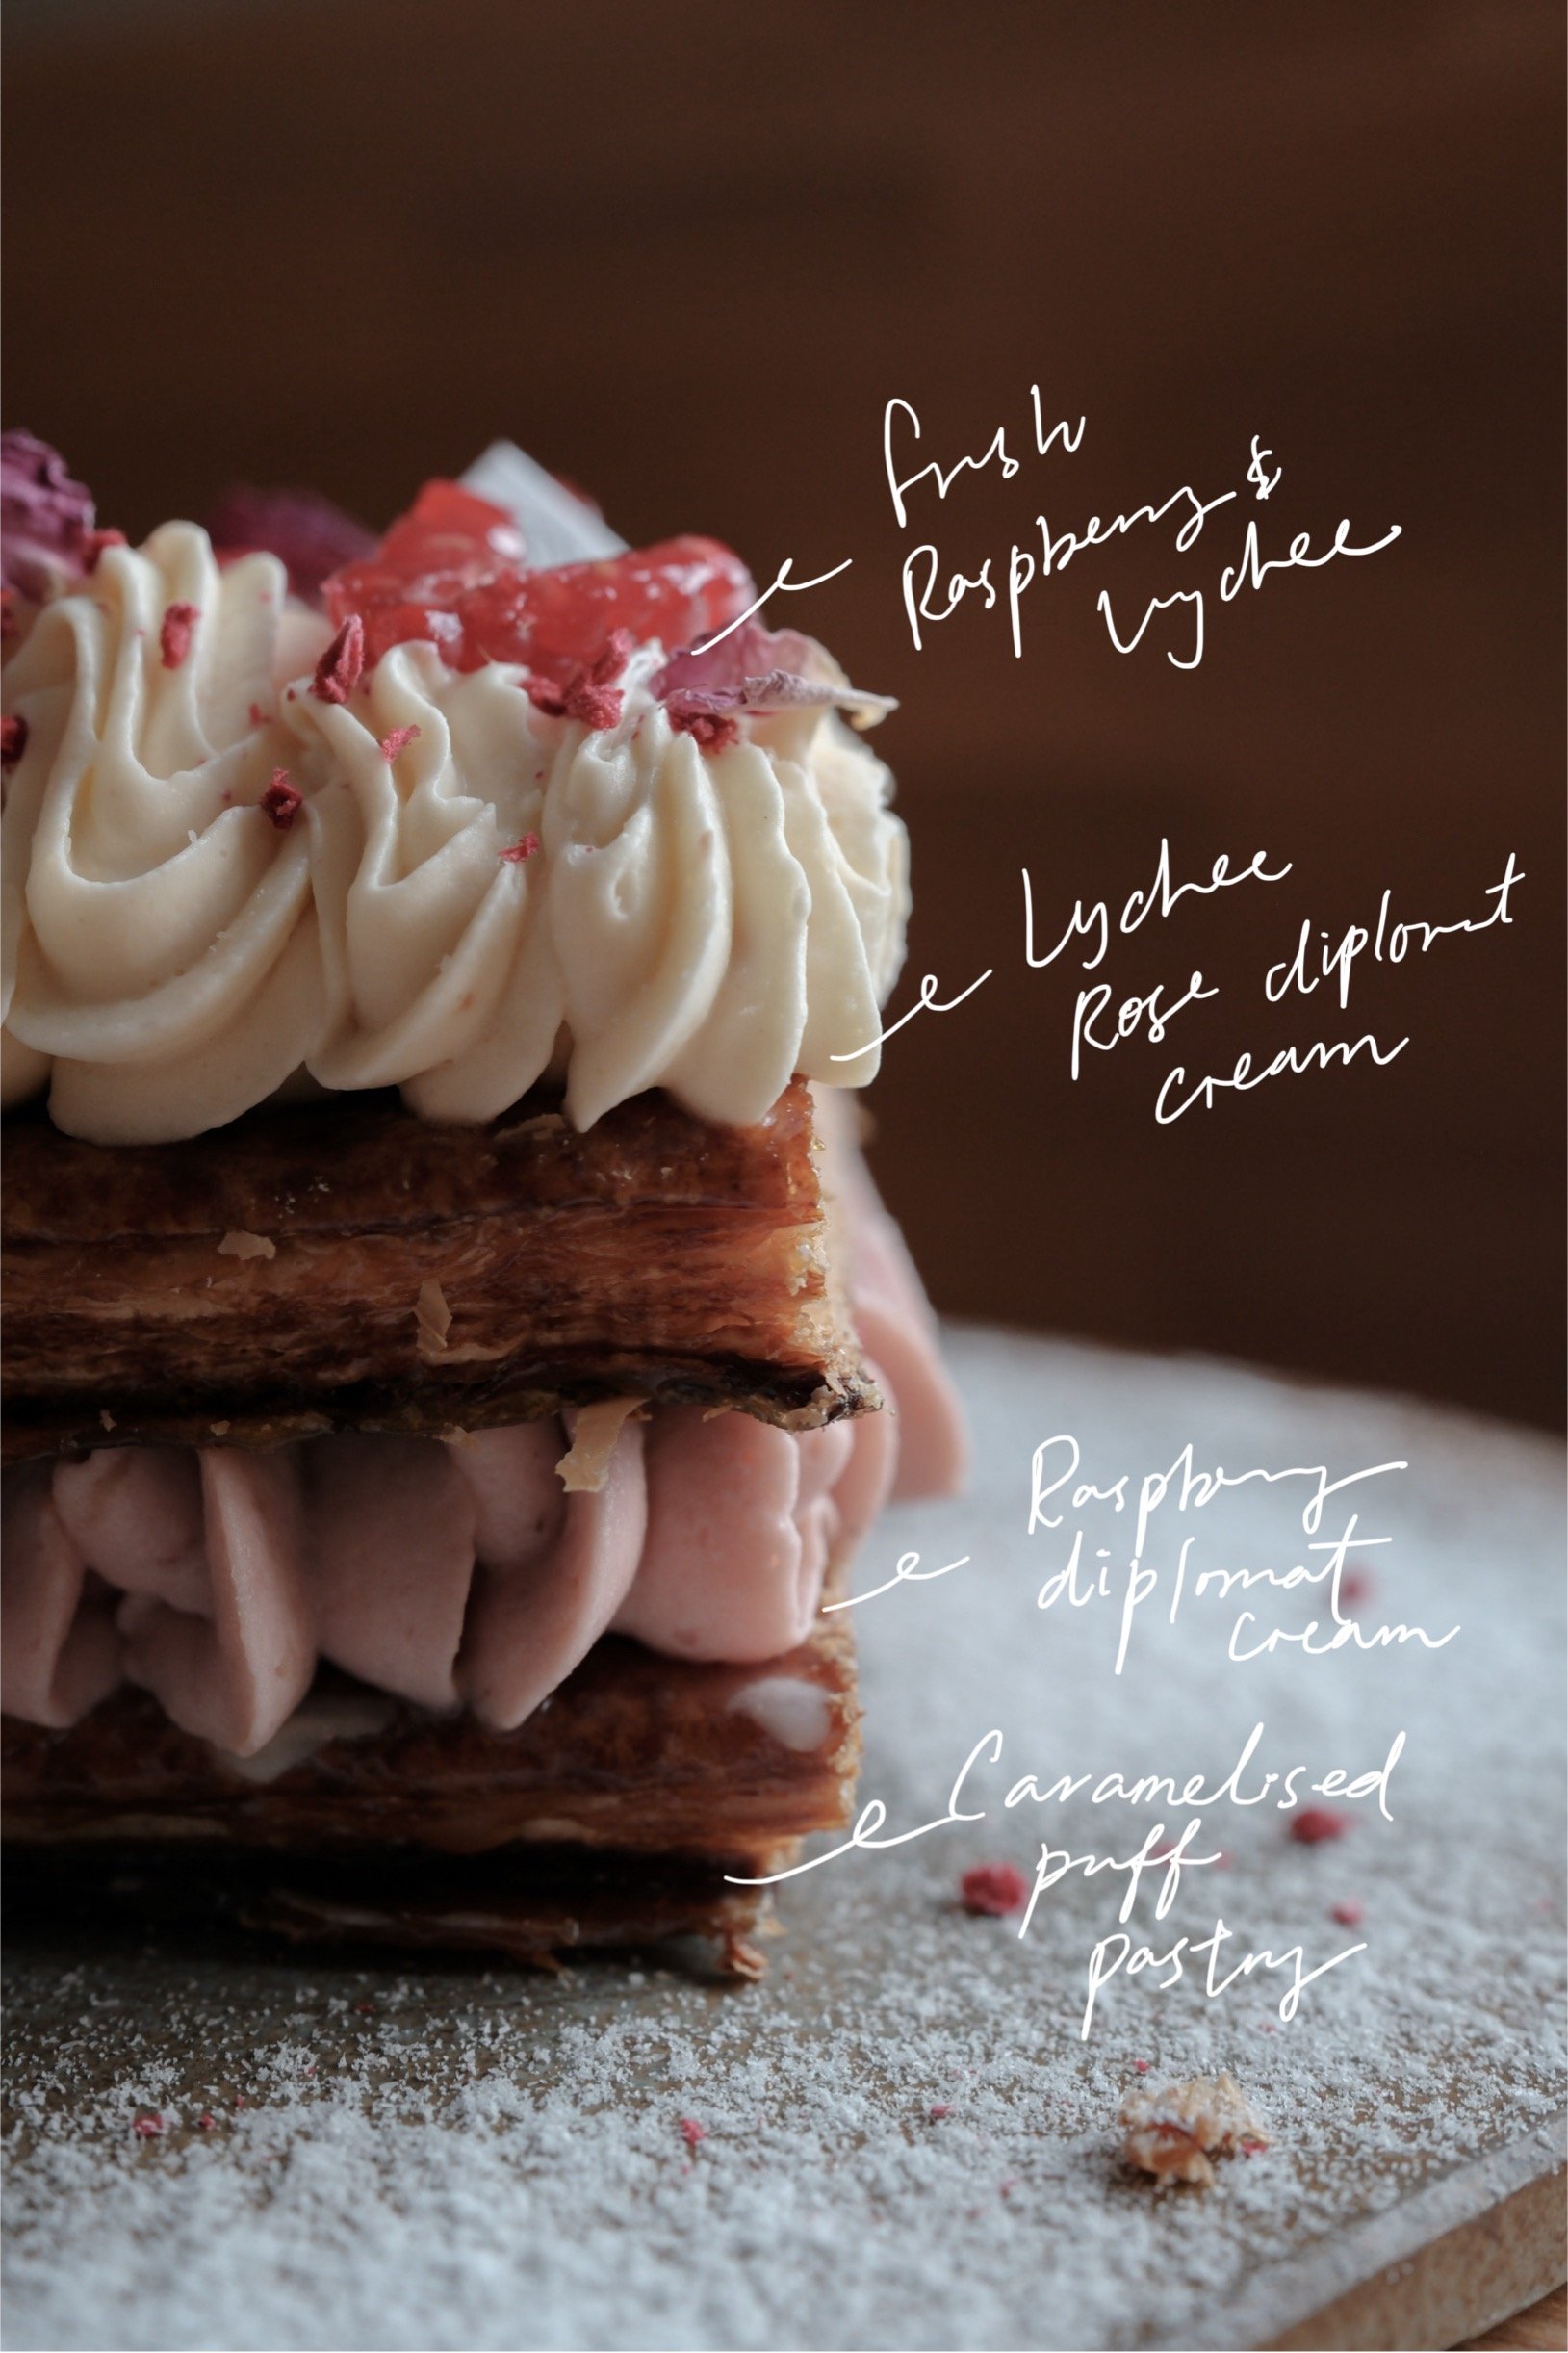 fresh
Raspberry &
lychee
Lychee
Rose diplomat
cream
Raspberry
diplomat
cream
Caramelised
puff
pastry